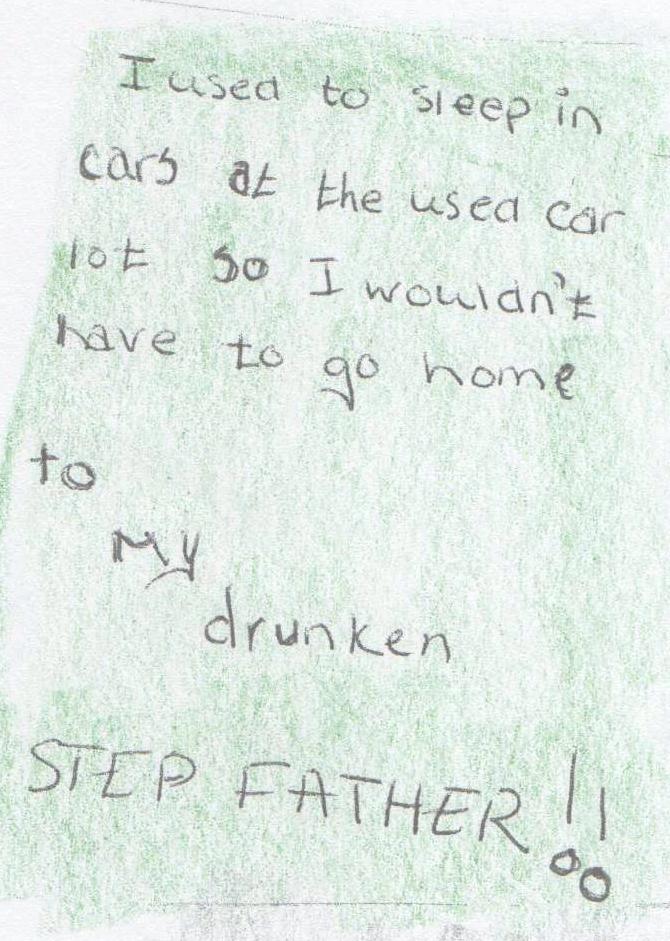 I used to sleep in
cars at the used car
lot so I wouldn't
have to go home
to
my
drunken
STEP FATHER!!